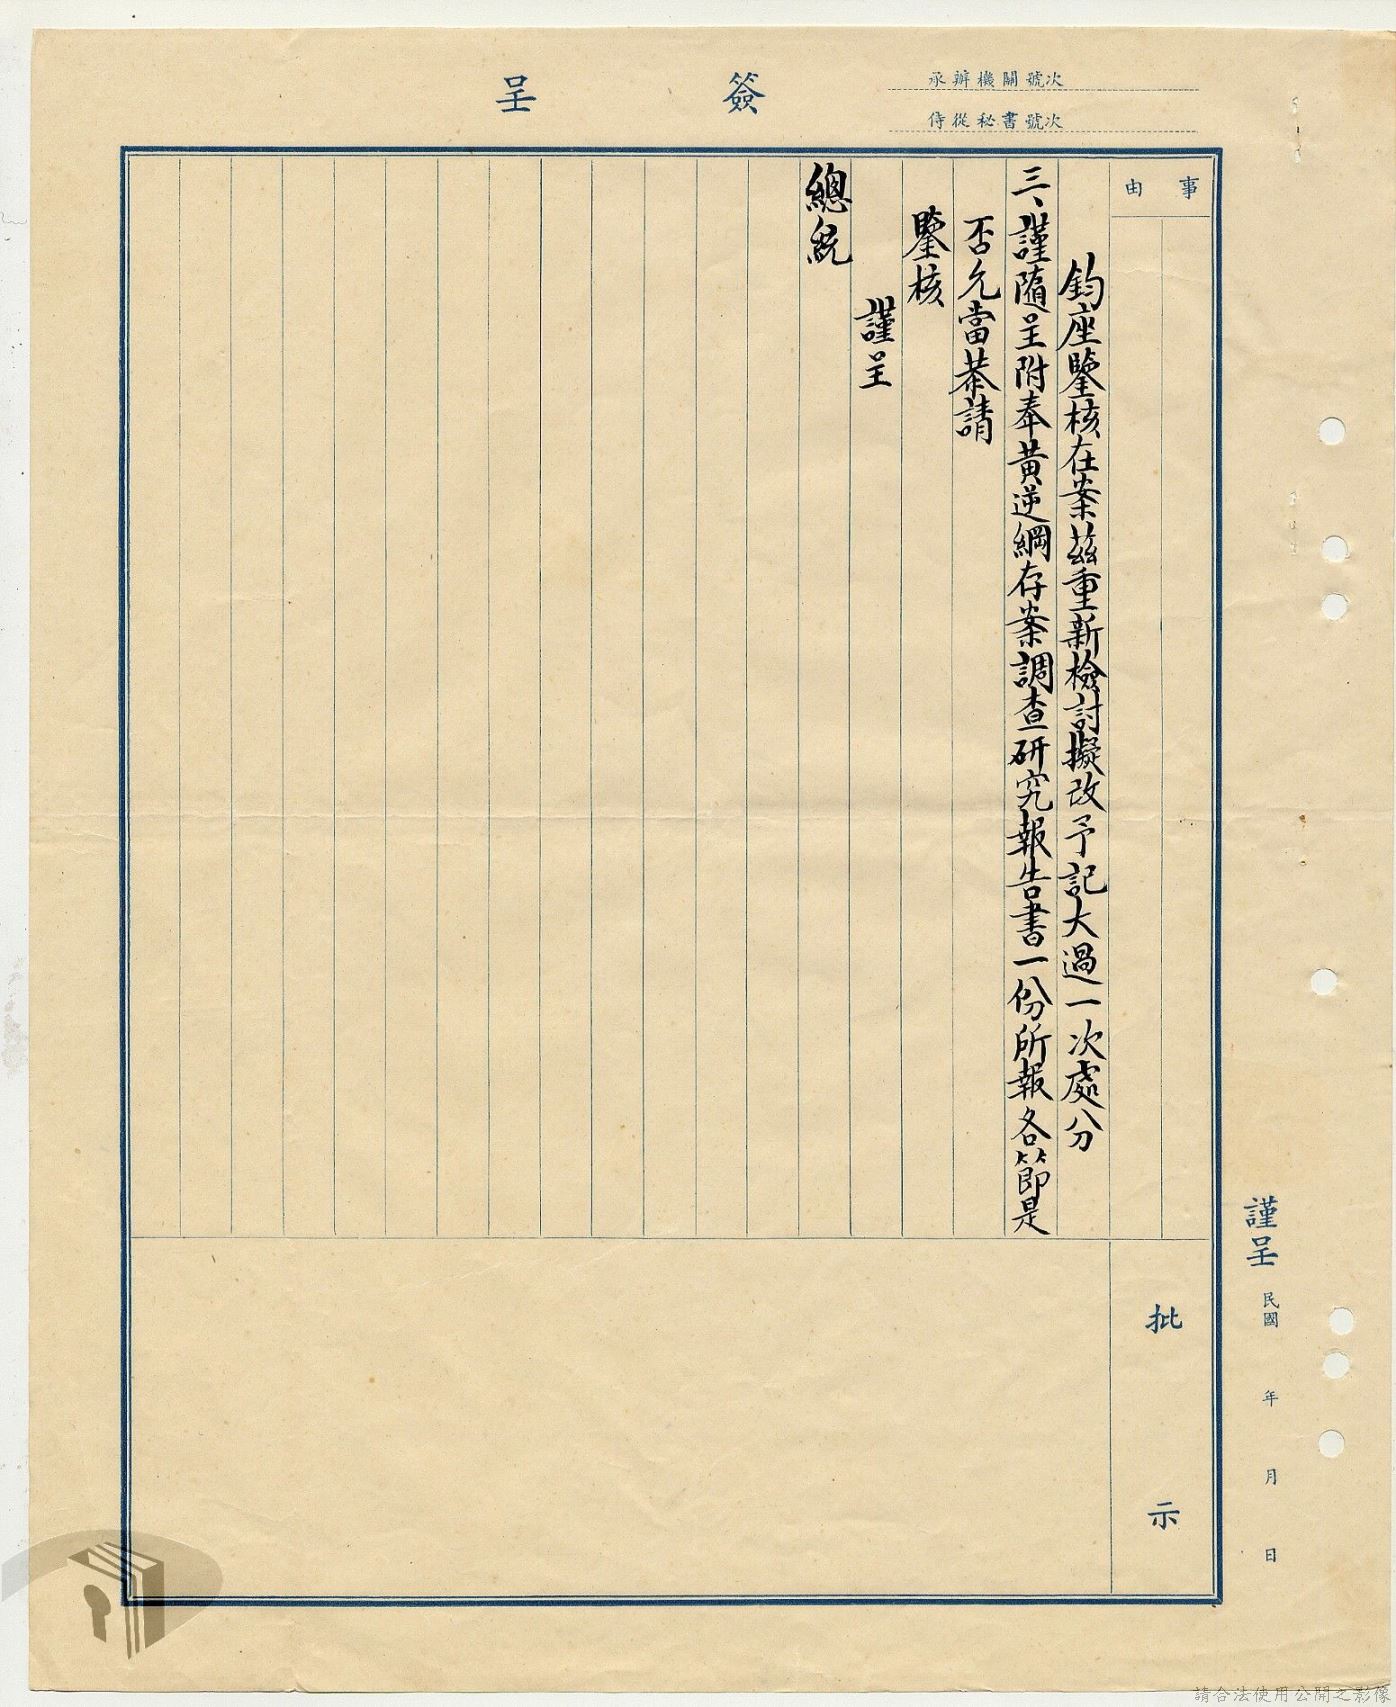 承辦機關號次
侍從秘書號次
簽呈
事由
鈞座鑒核在案茲重新檢討擬改予記大過一次處分
三、謹隨呈附奉黃逆綱存案調查研究報告書一份所報各節是
否允當恭請
鑒核
謹呈
總統
批示
謹呈 民國 年 月 日
請合法使用公開之影像